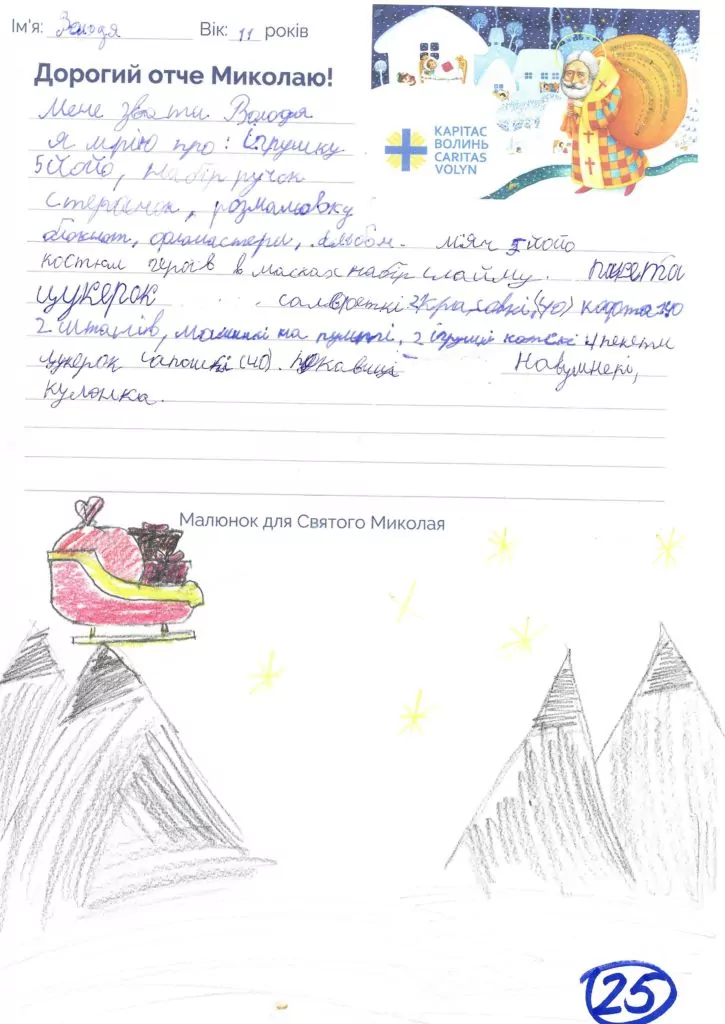 Ім'я: Володя Вік: 11 років
КАРІТАС
ВОЛИНЬ
CARITAS
VOLYN
Дорогий отче Миколаю!
Мене звати Володя
я мрію про: іграшку
5 йойо, набір ручок
стерачок, розмальовку
блокнот, фломастери, альбом. мяч 5 йойо
костюм героїв в масках набір слайму. пакета
цукерок салфетки 2 (40) карта
2 штанів, машинкі на пульті, 2 котскі 4 пакети
цукерок (40). Рукавиці Навушнекі,
кулонка.
Малюнок для Святого Миколая
25